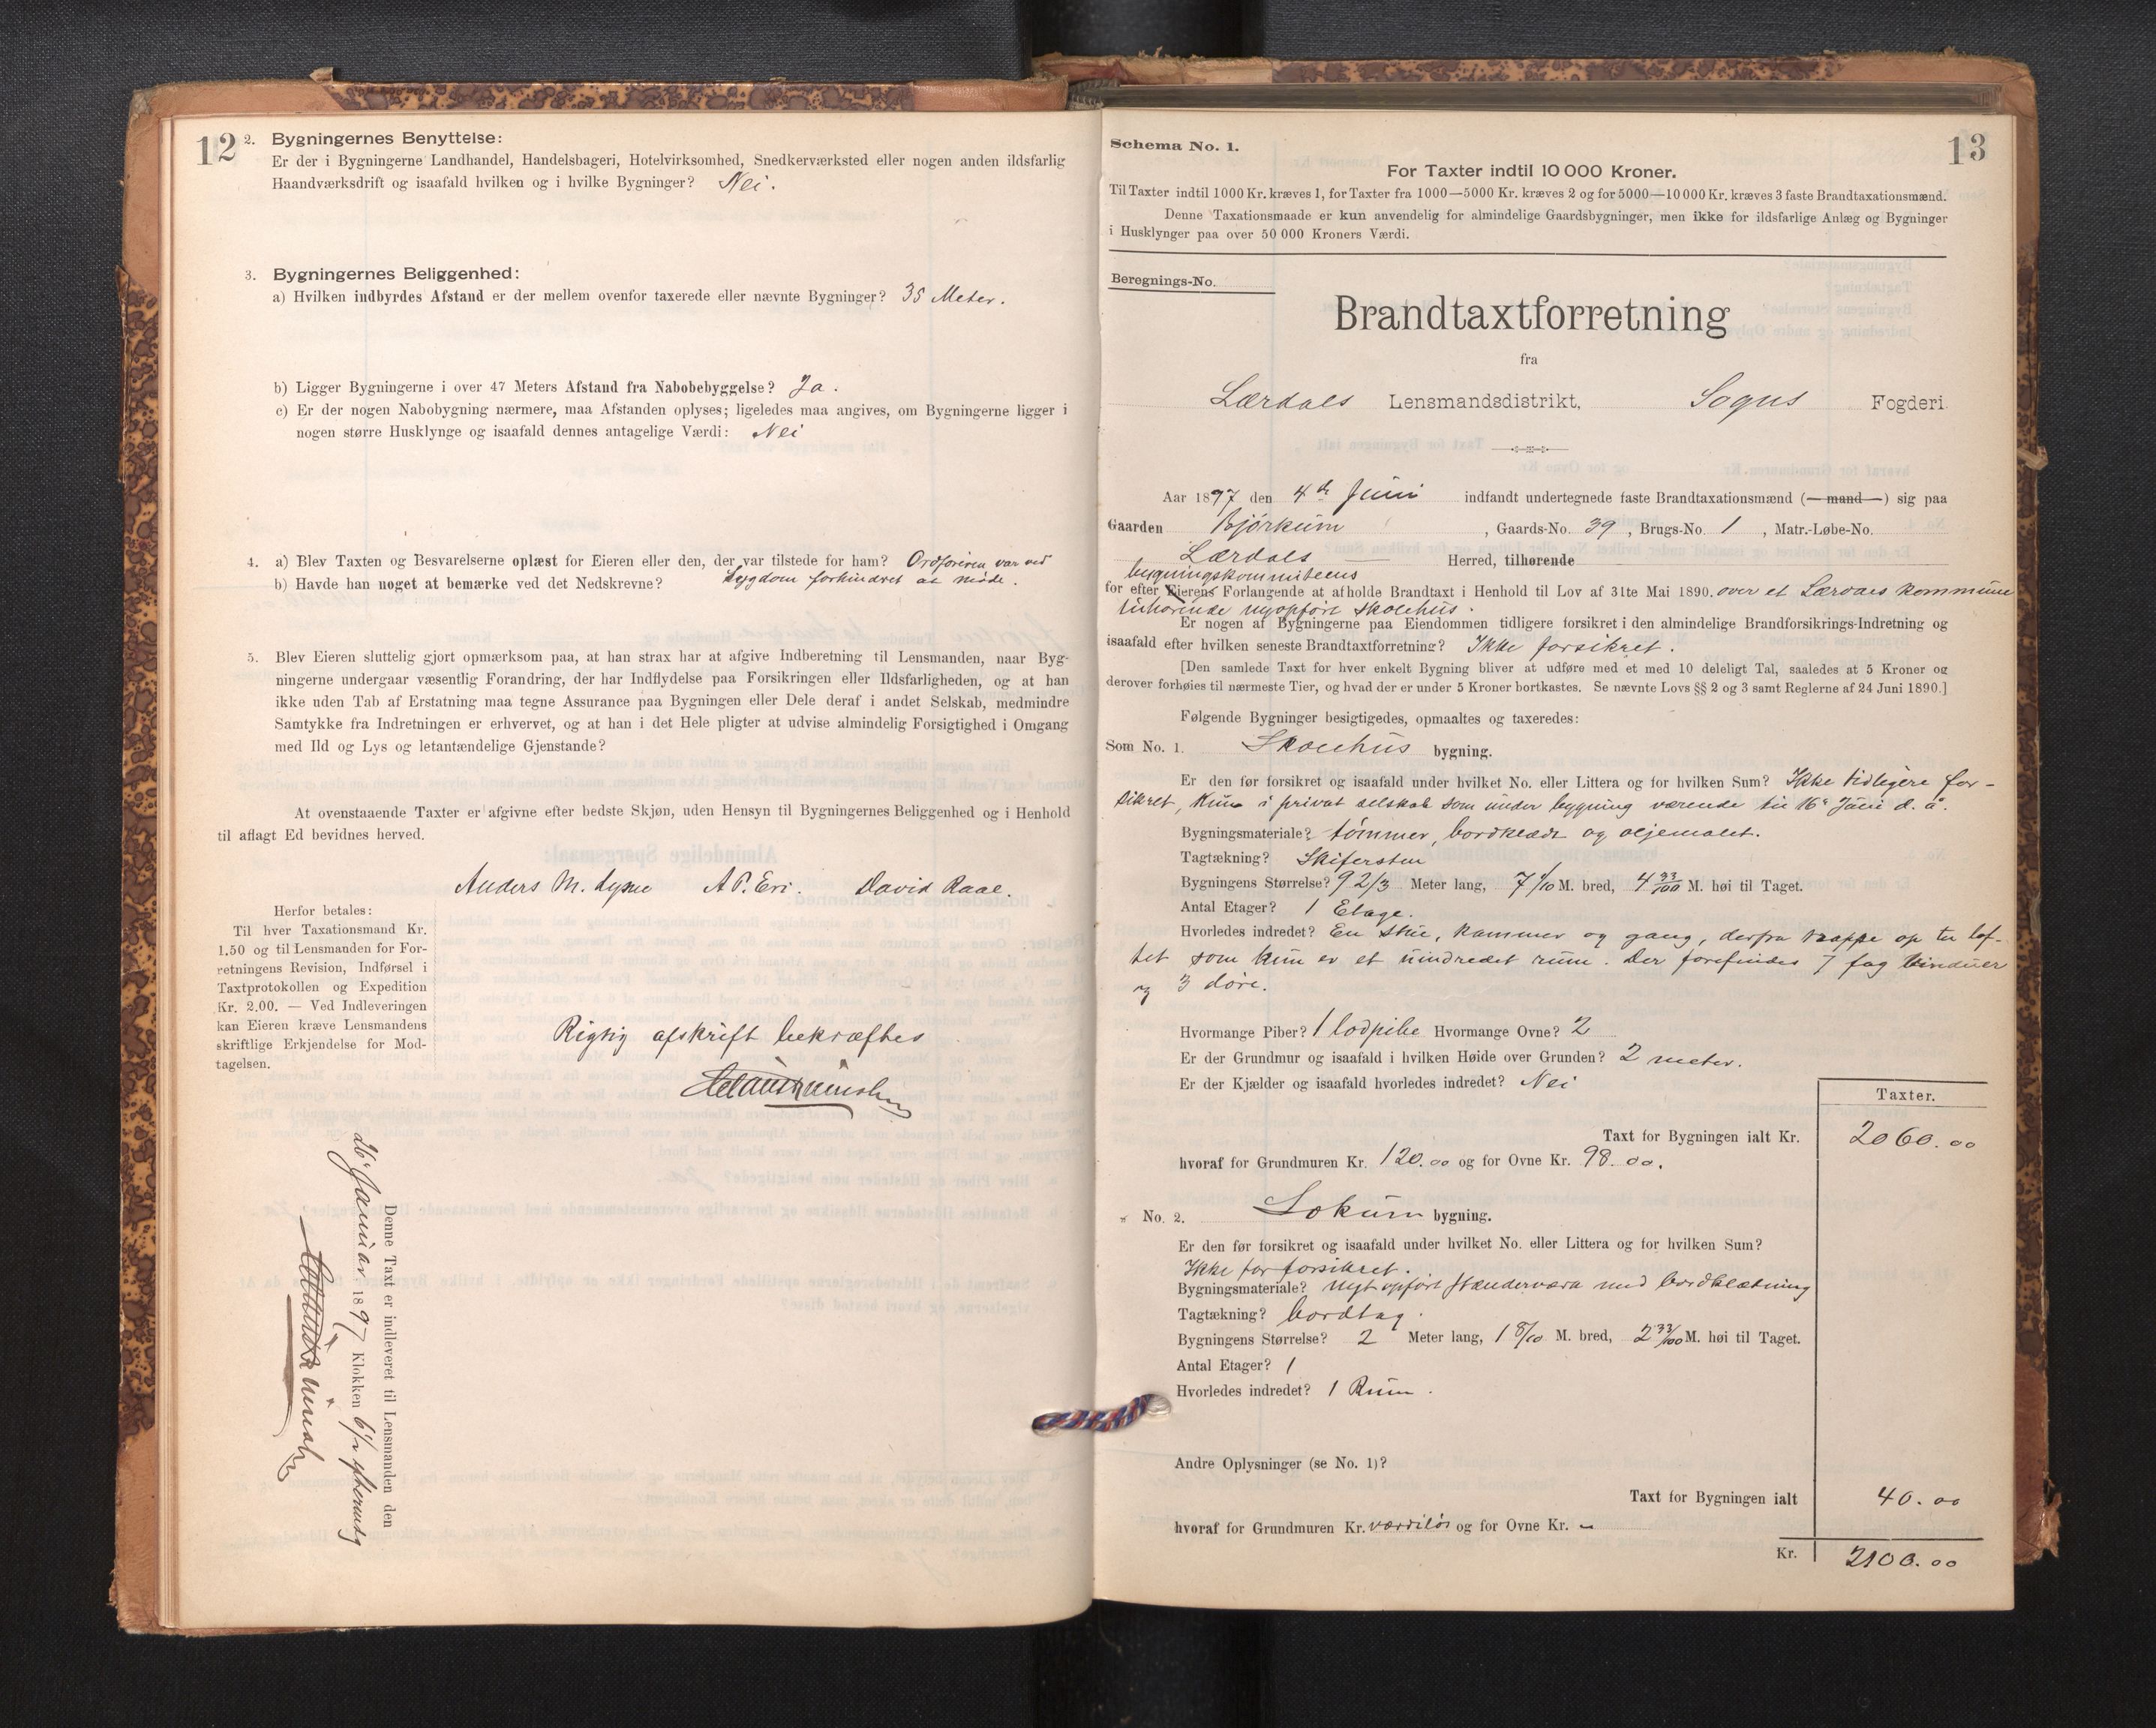 12
2. Bygningernes Benyttelse:
Er der i Bygningerne Landhandel, Handelsbageri, Hotelvirksomhed, Snedkerværksted eller nogen anden ildsfarlig
Haandværksdrift og isaafald hvilken og i hvilke Bygninger? Nei.
3. Bygningernes Beliggenhed:
a) Hvilken indbyrdes Afstand er der mellem ovenfor taxerede eller nævnte Bygninger? 35 Meter.
b) Ligger Bygningerne i over 47 Meters Afstand fra Nabobebyggelse? Ja.
c) Er der nogen Nabobygning nærmere, maa Afstanden oplyses; ligeledes maa angives, om Bygningerne ligger i
nogen større Husklynge og isaafald dennes antagelige Værdi: Nei
4. a) Blev Taxten og Besvarelserne oplæst for Eieren eller den, der var tilstede for ham? Ordføreren var ved
b) Havde han noget at bemærke ved det Nedskrevne? sygdom forhindret at møde.
5. Blev Eieren sluttelig gjort opmærksom paa, at han strax har at afgive Indberetning til Lensmanden, naar Byg-
ningerne undergaar væsentlig Forandring, der har Indflydelse paa Forsikringen eller Ildsfarligheden, og at han
ikke uden Tab af Erstatning maa tegne Assurance paa Bygningen eller Dele deraf i andet Selskab, medmindre
Samtykke fra Indretningen er erhvervet, og at han i det Hele pligter at udvise almindelig Forsigtighed i Omgang
med Ild og Lys og letantændelige Gjenstande?
At ovenstaaende Taxter er afgivne efter bedste Skjøn, uden Hensyn til Bygningernes Beliggenhed og i Henhold
til aflagt Ed bevidnes herved.
Anders M. Lysne A P. Eri. David Raae.
Herfor betales:
Til hver Taxationsmand Kr.
1.50 og til Lensmanden for For-
retningens Revision, Indførsel i
Taxtprotokollen og Expedition
Kr. 2.00. — Ved Indleveringen
kan Eieren kræve Lensmandens
skriftlige Erkjendelse for Mod-
tagelsen.
Rigtig afskrift bekræftes
Denne Taxt er indleveret til Lensmanden den
26' Januar 1897 Klokken 6 1/2 eftermdg
13
Schema No. 1.
For Taxter indtil 10 000 Kroner.
Til Taxter indtil 1000 Kr. kræves 1, for Taxter fra 1000—5000 Kr. kræves 2 og for 5000—10 000 Kr. kræves 3 faste Brandtaxationsmænd.
Denne Taxationsmaade er kun anvendelig for almindelige Gaardsbygninger, men ikke for ildsfarlige Anlæg og Bygninger
i Husklynger paa over 50 000 Kroners Værdi.
Beregnings-No.
Brandtaxtforretning
fra
Lærdals Lensmandsdistrikt, Sogns Fogderi
Aar 1897 den 4de Juni indfandt undertegnede faste Brandtaxationsmænd (—mand—) sig paa
Gaarden Bjørkum, Gaards-No. 39, Brugs-No. 1, Matr.-Løbe-No.
Lærdals Herred, tilhørende
bygningskommiteens
for efter Eierens Forlangende at afholde Brandtaxt i Henhold til Lov af 31te Mai 1890. over et Lærdals kommune
tilhørende nyopført skolehus.
Er nogen af Bygningerne paa Eiendommen tidligere forsikret i den almindelige Brandforsikrings-Indretning og
isaafald efter hvilken seneste Brandtaxtforretning? Ikke forsikret.
[Den samlede Taxt for hver enkelt Bygning bliver at udføre med et med 10 deleligt Tal, saaledes at 5 Kroner og
derover forhøies til nærmeste Tier, og hvad der er under 5 Kroner bortkastes. Se nævnte Lovs §§ 2 og 3 samt Reglerne af 24 Juni 1890.]
Følgende Bygninger besigtigedes, opmaaltes og taxeredes:
Som No. 1. Skolehus bygning.
Er den før forsikret og isaafald under hvilket No. eller Littera og for hvilken Sum? Ikke tidligere for-
sikret, kun i privat selskab som under bygning værende til 16' Juni d. å.
Bygningsmateriale? tømmer, bordklædt og oljemalet.
Tagtækning? Skifersten
Bygningens Størrelse? 9 2/3 Meter lang, 7 1/10 M. bred, 4 33/100 M. høi til Taget.
Antal Etager? 1 Etage.
Hvorledes indredet? En stue, kammer og gang, derfra trappe op til lof-
tet som kun er et uindredet rum. Der forefindes 7 fag vinduer
og 3 døre.
Hvormange Piber? 1 lodpibe Hvormange Ovne? 2
Er der Grundmur og isaafald i hvilken Høide over Grunden? 2 meter.
Er der Kjælder og isaafald hvorledes indredet? Nei
Taxter.
Taxt for Bygningen ialt Kr. 2060.00
hvoraf for Grundmuren Kr. 120.00 og for Ovne Kr. 98.00.
" No. 2. Lokum bygning.
Er den før forsikret og isaafald under hvilket No. eller Littera og for hvilken Sum?
Ikke før forsikret.
Bygningsmateriale? nyt opført Stænderværk med bordklædning
Tagtækning? bordtag.
Bygningens Størrelse? 2 Meter lang, 1 8/10 M. bred, 2 33/100 M. høi til Taget.
Antal Etager? 1
Hvorledes indredet? 1 Rum.
Andre Oplysninger (se No. 1)?
Taxt for Bygningen ialt 40.00
hvoraf for Grundmuren Kr. værdiløs og for Ovne Kr. –
Kr. 2100.00